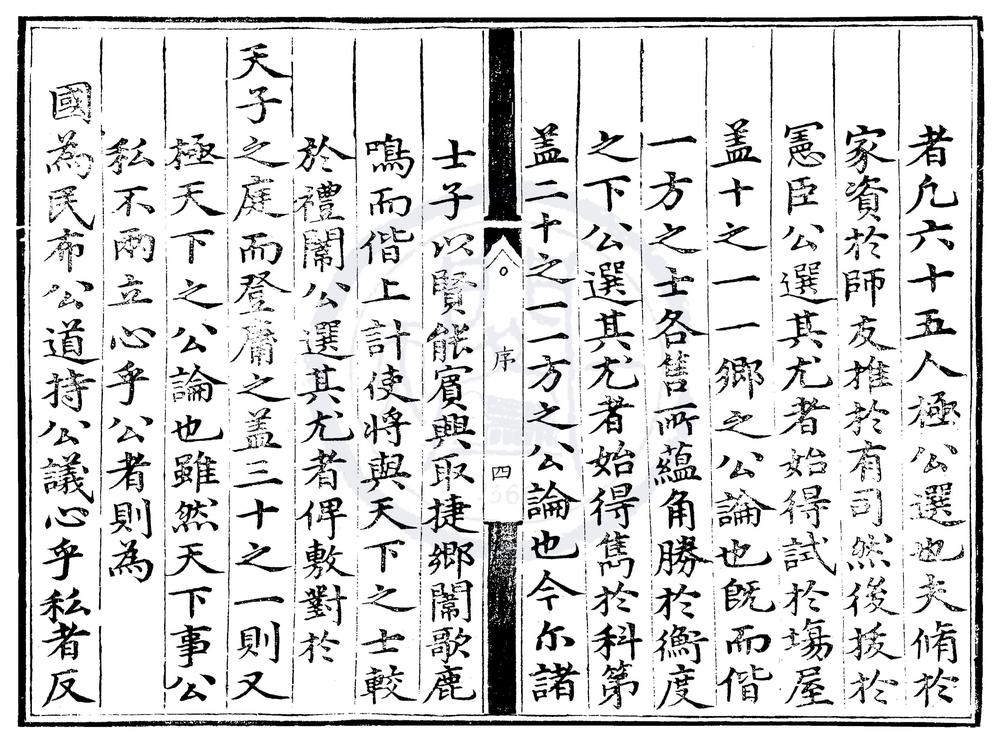 者凢六十五人極公選也夫脩於
家資於師友推於有司然後拔於
憲臣公選其尤者始得試於塲屋
盖十之一一鄉之公論也旣而偕
一方之士各售所蘊角勝於衡度
之下公選其尤者始得雋於科第
盖二十之一一方之公論也今尓諸
序 四
士子以賢能賓興取捷鄉闈歌鹿
鳴而偕上計使將與天下之士較
於禮闈公選其尤者俾敷對於
天子之庭而登庸之盖三十之一則又
極天下之公論也雖然天下事公
私不兩立心乎公者則為
國為民布公道持公議心乎私者反